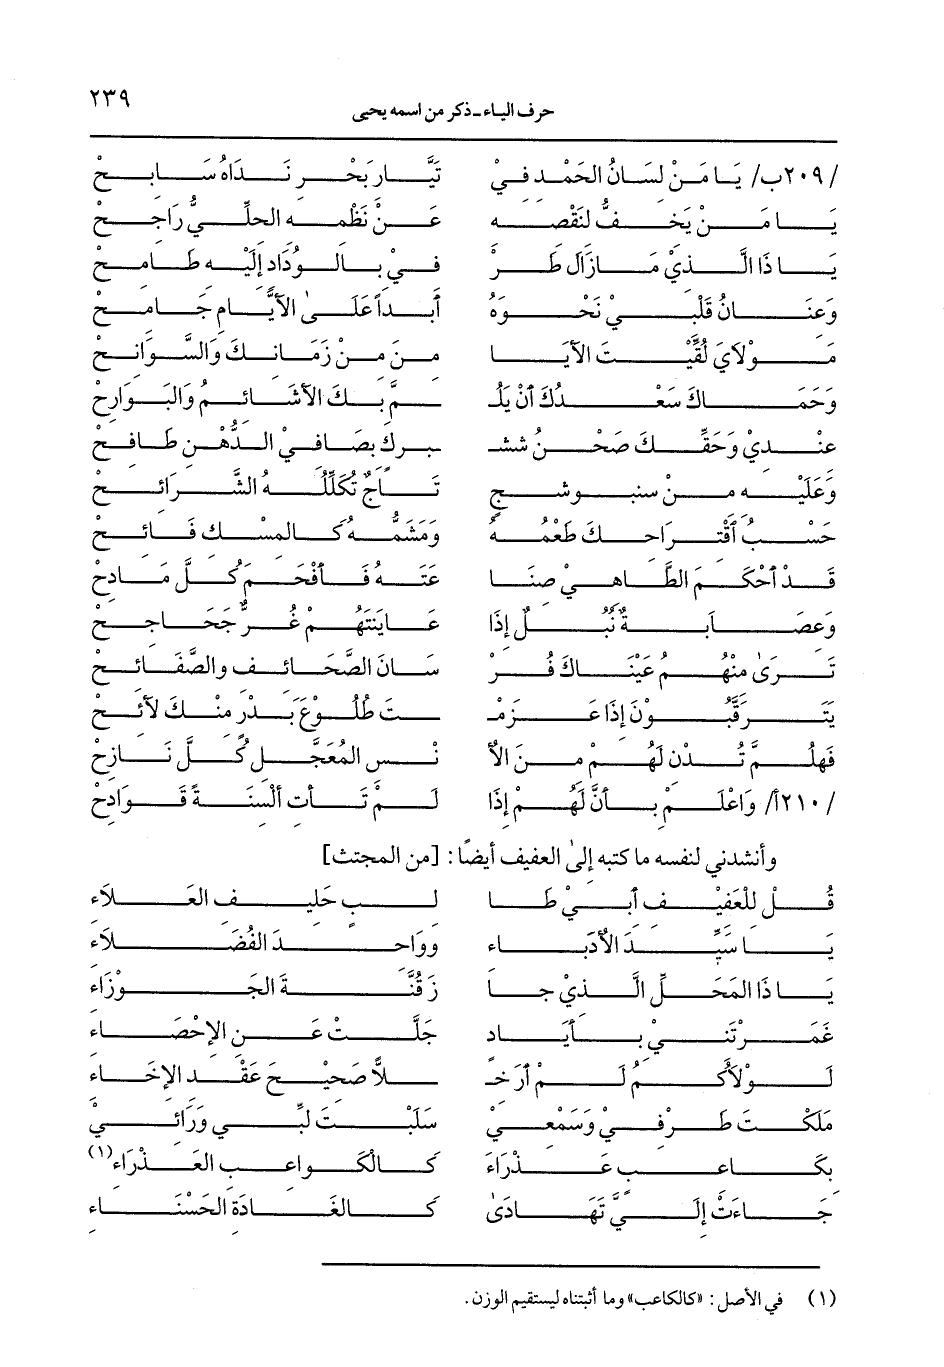 ٢٣٩
حرف الياء - ذكر من اسمه يحيى
/٢٠٩ب/ يَا مَنْ لِسَانُ الحَمْدِ فِيْ تَيَّارِ بَحْرِ نَدَاهُ سَابِحْ
يَا مَنْ يَخِفُّ لِنَقْصِهِ عَنْ نَظْمِهِ الحلِّيُّ رَاجِحْ
يَا ذَا الَّذِيْ مَازَالَ طَرْ فِيْ بِالوُدَادِ إِلَيْهِ طَامِحْ
وَعِنَانُ قَلْبِيْ نَحْوَهُ أَبَداً عَلَى الأَيَّامِ جَامِحْ
مَوْلَايَ لُقِّيْتَ الأَيَا مِنَ مِنْ زَمَانِكَ وَالسَّوَانِحْ
وَحَمَاكَ سَعْدُكَ أَنْ يَلُـ ـمَّ بِكَ الأَشَائِمُ وَالبَوَارِحْ
عِنْدِيْ وَحَقِّكَ صَحْنُ ششـ ـبرك بِصَافِيْ الدُّهْنِ طَافِحْ
وَعَلَيْهِ مِنْ سنبوشجٍ تَاجٌ تُكَلِّلُهُ الشَّرَائِحْ
حَسْبُ اقْتِرَاحِكَ طَعْمُهُ وَمَشَمُّهُ كَالمِسْكِ فَائِحْ
قَدْ أَحْكَمَ الطَّاهِيْ صِنَا عَتَهُ فَأَفْحَمَ كُلَّ مَادِحْ
وَعِصَابَةٌ نُبُلٌ إِذَا عَايَنْتَهُمْ غُرٌّ جَحَاجِحْ
تَرَىٰ مِنْهُمُ عَيْنَاكَ فُرْ سَانَ الصَّحَائِفِ والصَّفَائِحْ
يَتَرَقَّبُوْنَ إِذَا عَزَمْـ ـتَ طُلُوْعَ بَدْرٍ مِنْكَ لَائِحْ
فَهَلُمَّ تُدْنِ لَهُمْ مِنَ الأُ نْسِ المُعَجَّلِ كُلَّ نَازِحْ
/٢١٠أ/ وَاعْلَمْ بِأَنَّ لَهُمْ إِذَا لَمْ تَأْتِ أَلْسِنَةً قَوَادِحْ
وأنشدني لنفسه ما كتبه إلىٰ العفيف أيضًا: [من المجتث]
قُلْ لِلْعَفِيْفِ أَبِيْ طَا لِبٍ حَلِيفِ العَلاَءِ
يَا سَيِّدَ الأُدَبَاءِ وَوَاحِدَ الفُضَلاَءِ
يَا ذَا المَحَلِّ الَّذِيْ جَا زَ قُنَّةَ الجَوْزَاءِ
غَمَرْتَنِيْ بِأَيَادٍ جَلَّتْ عَنِ الإِحْصَاءِ
لَوْلَاكُمُ لَمْ أَرَ خِـ ـلاًّ صَحِيْحَ عَقْدِ الإِخَاءِ
مَلَكْتَ طَرْفِيْ وَسَمْعِيْ سَلَبْتَ لُبِّي وَرَائِيْ
بِكَاعِبٍ عَذْرَاءَ كَالْكَوَاعِبِ العَذْرَاءِ(١)
جَاءَتْ إِلَيَّ تَهَادَىٰ كَالغَادَةِ الحَسْنَاءِ
(١) في الأصل: «كالكاعب» وما أثبتناه ليستقيم الوزن.